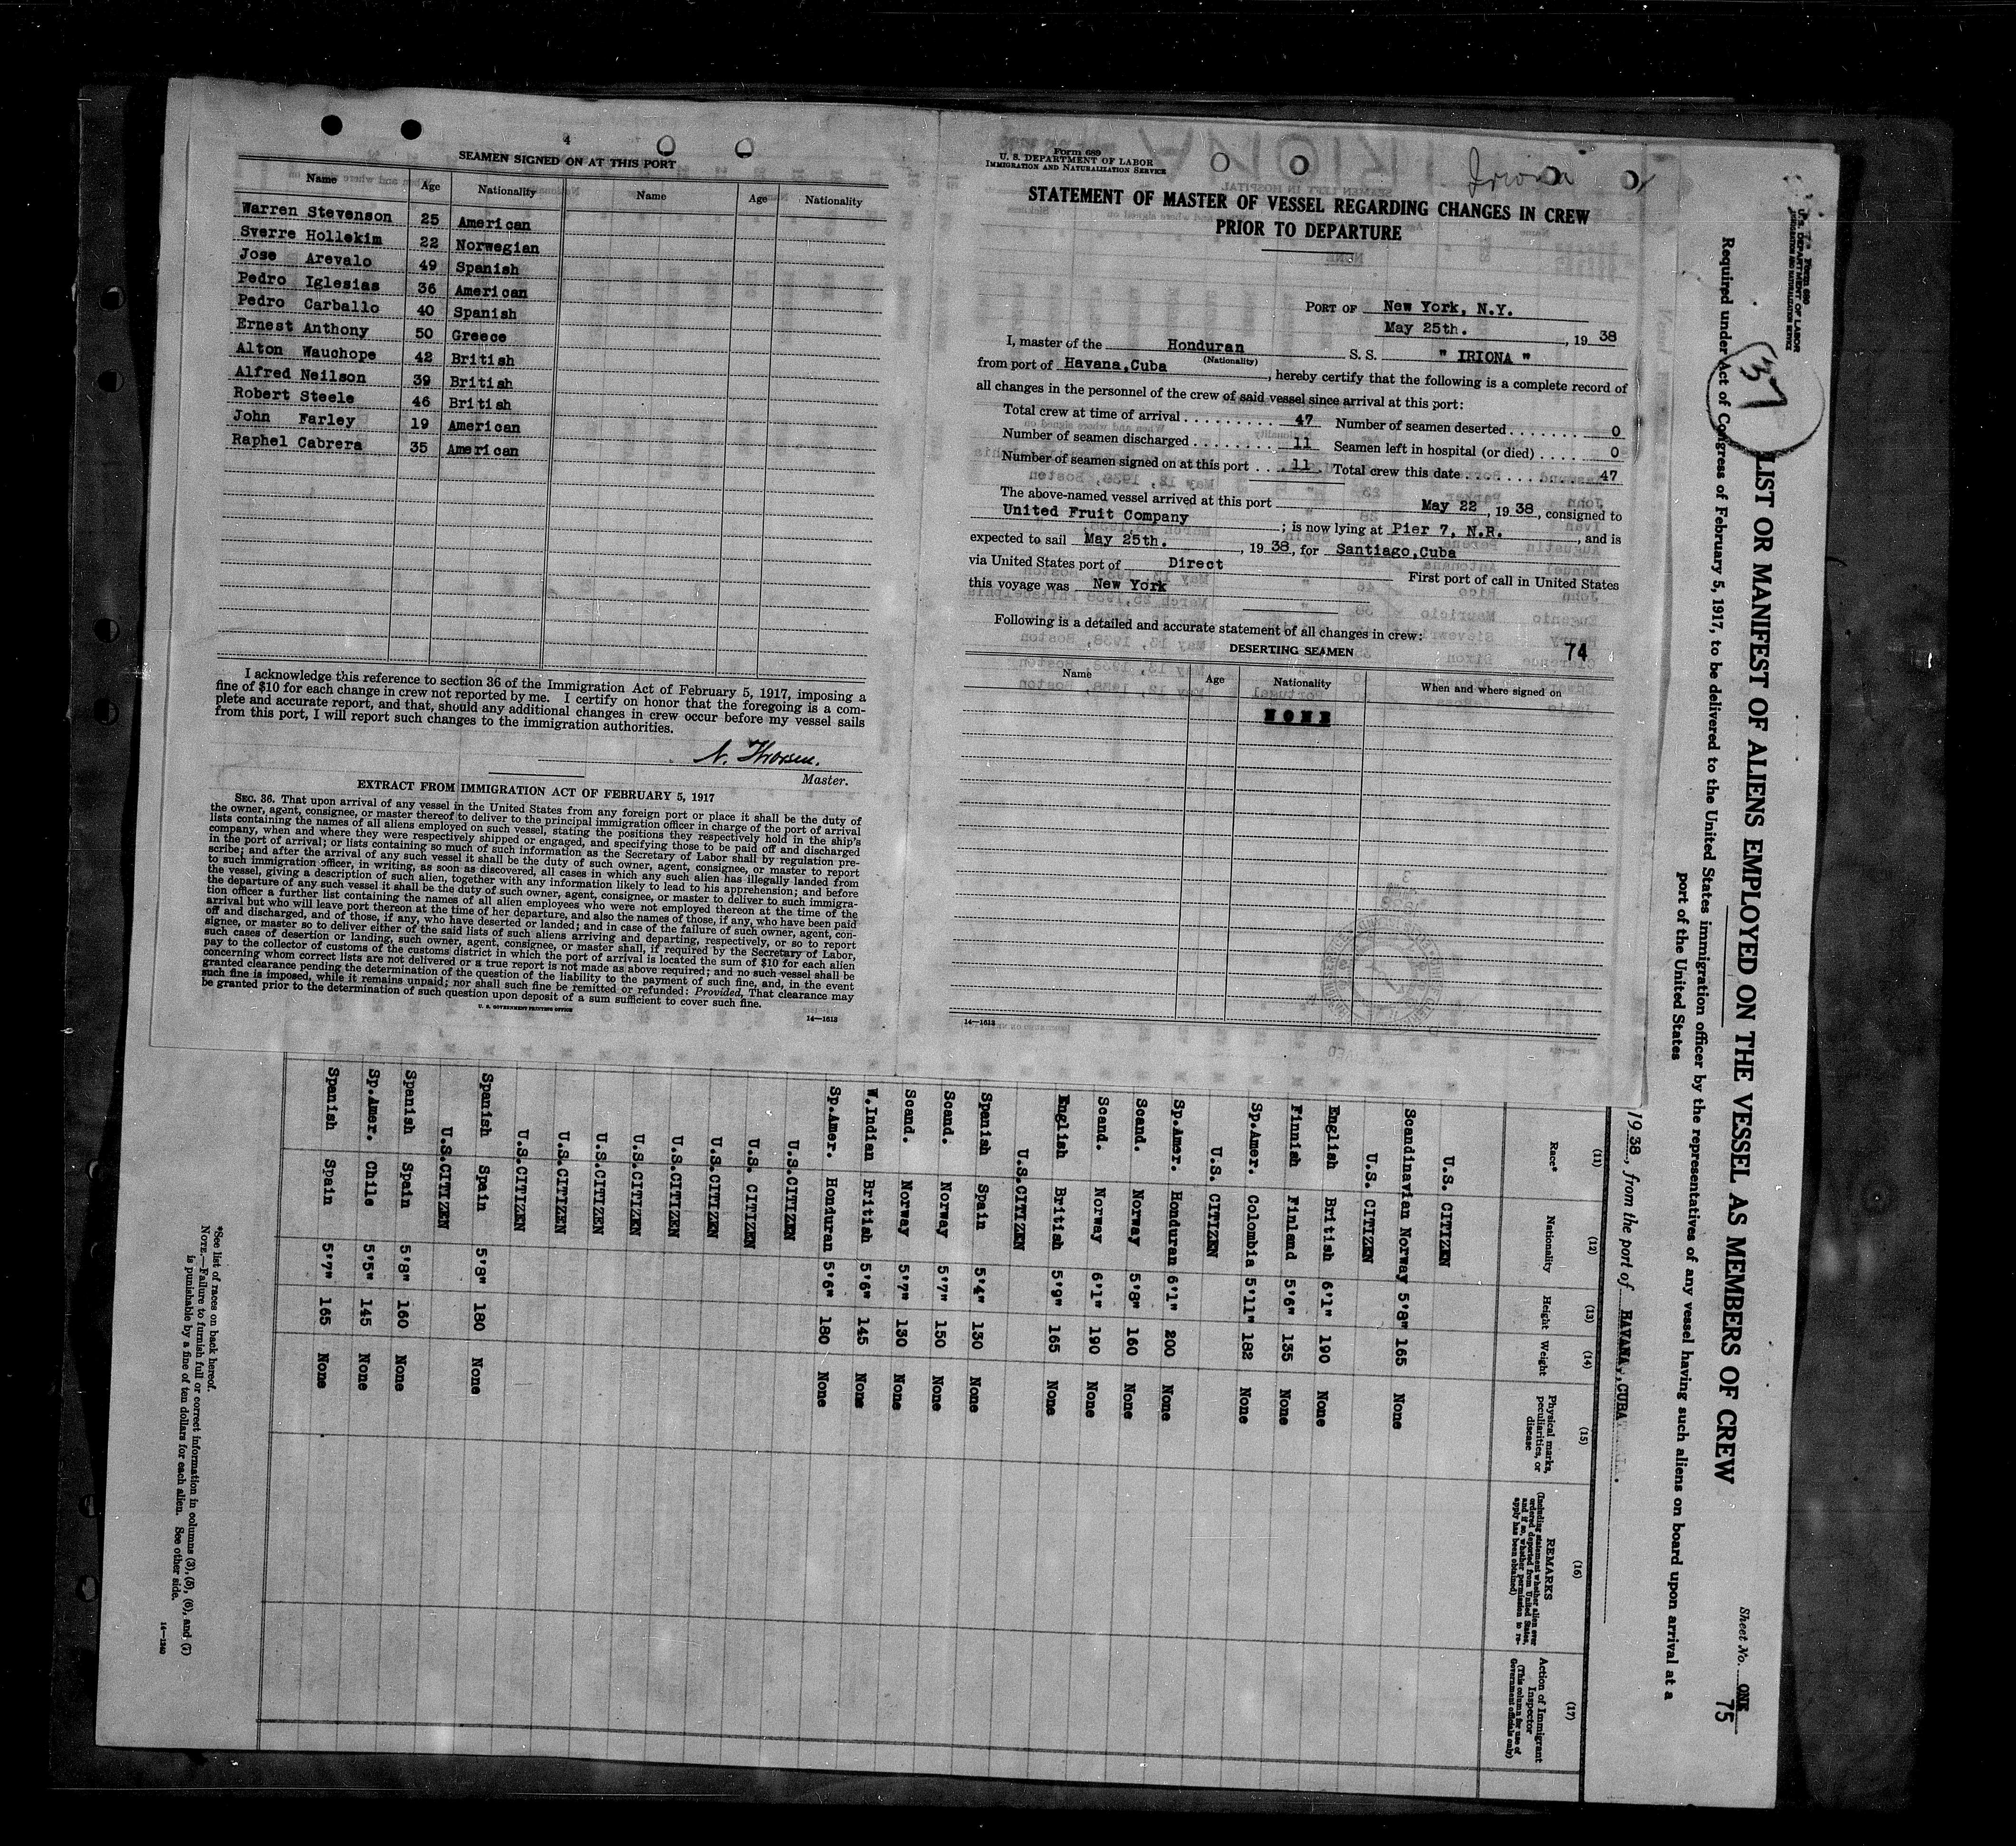 4
SEAMEN SIGNED ON AT THIS PORT
Name Age Nationality Name Age Nationality
Warren Stevenson 25 American
Sverre Hollekim 22 Norwegian
Jose Arevalo 49 Spanish
Pedro Iglesias 36 American
Pedro Carballo 40 Spanish
Ernest Anthony 50 Greece
Alton Wauchope 42 British
Alfred Neilson 39 British
Robert Steele 46 British
John Farley 19 American
Raphel Cabrera 35 American
I acknowledge this reference to section 36 of the Immigration Act of February 5, 1917, imposing a
fine of $10 for each change in crew not reported by me. I certify on honor that the foregoing is a com-
plete and accurate report, and that, should any additional changes in crew occur before my vessel sails
from this port, I will report such changes to the immigration authorities.
N. Thorsen.
Master.
EXTRACT FROM IMMIGRATION ACT OF FEBRUARY 5, 1917
SEC. 36. That upon arrival of any vessel in the United States from any foreign port or place it shall be the duty of
the owner, agent, consignee, or master thereof to deliver to the principal immigration officer in charge of the port of arrival
lists containing the names of all aliens employed on such vessel, stating the positions they respectively hold in the ship's
company, when and where they were respectively shipped or engaged, and specifying those to be paid off and discharged
in the port of arrival; or lists containing so much of such information as the Secretary of Labor shall by regulation pre-
scribe; and after the arrival of any such vessel it shall be the duty of such owner, agent, consignee, or master to report
to such immigration officer, in writing, as soon as discovered, all cases in which any such alien has illegally landed from
the vessel, giving a description of such alien, together with any information likely to lead to his apprehension; and before
the departure of any such vessel it shall be the duty of such owner, agent, consignee, or master to deliver to such immigra-
tion officer a further list containing the names of all alien employees who were not employed thereon at the time of the
arrival but who will leave port thereon at the time of her departure, and also the names of those, if any, who have been paid
off and discharged, and of those, if any, who have deserted or landed; and in case of the failure of such owner, agent, con-
signee, or master so to deliver either of the said lists of such aliens arriving and departing, respectively, or so to report
such cases of desertion or landing, such owner, agent, consignee, or master shall, if required by the Secretary of Labor,
pay to the collector of customs of the customs district in which the port of arrival is located the sum of $10 for each alien
concerning whom correct lists are not delivered or a true report is not made as above required; and no such vessel shall be
granted clearance pending the determination of the question of the liability to the payment of such fine, and, in the event
such fine is imposed, while it remains unpaid; nor shall such fine be remitted or refunded: Provided, That clearance may
be granted prior to the determination of such question upon deposit of a sum sufficient to cover such fine.
U. S. GOVERNMENT PRINTING OFFICE
14—1613
Form 689
U. S. DEPARTMENT OF LABOR
IMMIGRATION AND NATURALIZATION SERVICE
Iriona
STATEMENT OF MASTER OF VESSEL REGARDING CHANGES IN CREW
PRIOR TO DEPARTURE
PORT OF New York, N.Y.
May 25th. , 19 38
I, master of the Honduran S. S. " IRIONA "
(Nationality)
from port of Havana,Cuba , hereby certify that the following is a complete record of
all changes in the personnel of the crew of said vessel since arrival at this port:
Total crew at time of arrival 47 Number of seamen deserted 0
Number of seamen discharged 11 Seamen left in hospital (or died) 0
Number of seamen signed on at this port 11 Total crew this date 47
The above-named vessel arrived at this port May 22 , 19 38, consigned to
United Fruit Company ; is now lying at Pier 7, N.R. , and is
expected to sail May 25th. , 19 38, for Santiago,Cuba
via United States port of Direct First port of call in United States
this voyage was New York
Following is a detailed and accurate statement of all changes in crew:
74
DESERTING SEAMEN
Name Age Nationality When and where signed on
NONE
14—1613
Form 689
U. S. DEPARTMENT OF LABOR
IMMIGRATION AND NATURALIZATION SERVICE
37
LIST OR MANIFEST OF ALIENS EMPLOYED ON THE VESSEL AS MEMBERS OF CREW
Sheet No. ONE
75
Required under Act of Congress of February 5, 1917, to be delivered to the United States immigration officer by the representatives of any vessel having such aliens on board upon arrival at a
port of the United States
1938, from the port of HAVANA,CUBA.
(11) (12) (13) (14) (15) (16) (17)
Race* Nationality Height Weight Physical marks, peculiarities, or disease REMARKS (Including statement whether alien ever ordered deported from United States, and if so, whether permission to re-apply has been obtained) Action of Immigrant Inspector (This column for use of Government officials only)
U.S. CITIZEN
Scandinavian Norway 5'8" 165 None
U.S. CITIZEN
English British 6'1" 190 None
Finnish Finland 5'6" 135 None
Sp.Amer. Colombia 5'11" 182 None
U.S. CITIZEN
Sp.Amer. Honduran 6'1" 200 None
Scand. Norway 5'8" 160 None
Scand. Norway 6'1" 190 None
English British 5'9" 165 None
U.S.CITIZEN
Spanish Spain 5'4" 130 None
Scand. Norway 5'7" 150 None
Scand. Norway 5'7" 130 None
W.Indian British 5'6" 145 None
Sp.Amer. Honduran 5'6" 180 None
U.S.CITIZEN
U.S. CITIZEN
U.S.CITIZEN
U.S.CITIZEN
U.S.CITIZEN
U.S.CITIZEN
U.S.CITIZEN
U.S.CITIZEN
Spanish Spain 5'8" 180 None
U.S.CITIZEN
Spanish Spain 5'8" 160 None
Sp.Amer. Chile 5'5" 145 None
Spanish Spain 5'7" 165 None
*See list of races on back hereof.
NOTE.—Failure to furnish full or correct information in columns (3), (5), (6), and (7)
is punishable by a fine of ten dollars for each alien. See other side.
14—1240